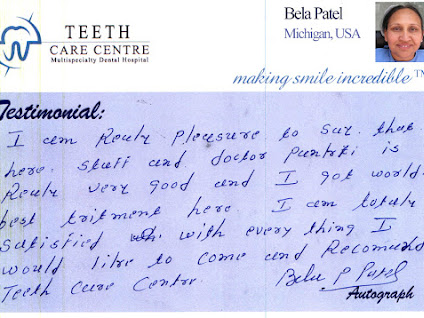 TEETH
CARE CENTRE
Multispecialty Dental Hospital
Bela Patel
Michigan, USA
making smile incredible TM
Testimonial:
I am Realy pleasure to say that
here stuff and doctor is
Realy very good and I got world
best tritment here I am totaly
Satisfied with every thing I
would like to come and Recomand
Teeth Care Centre.
Bela P Patel
Autograph